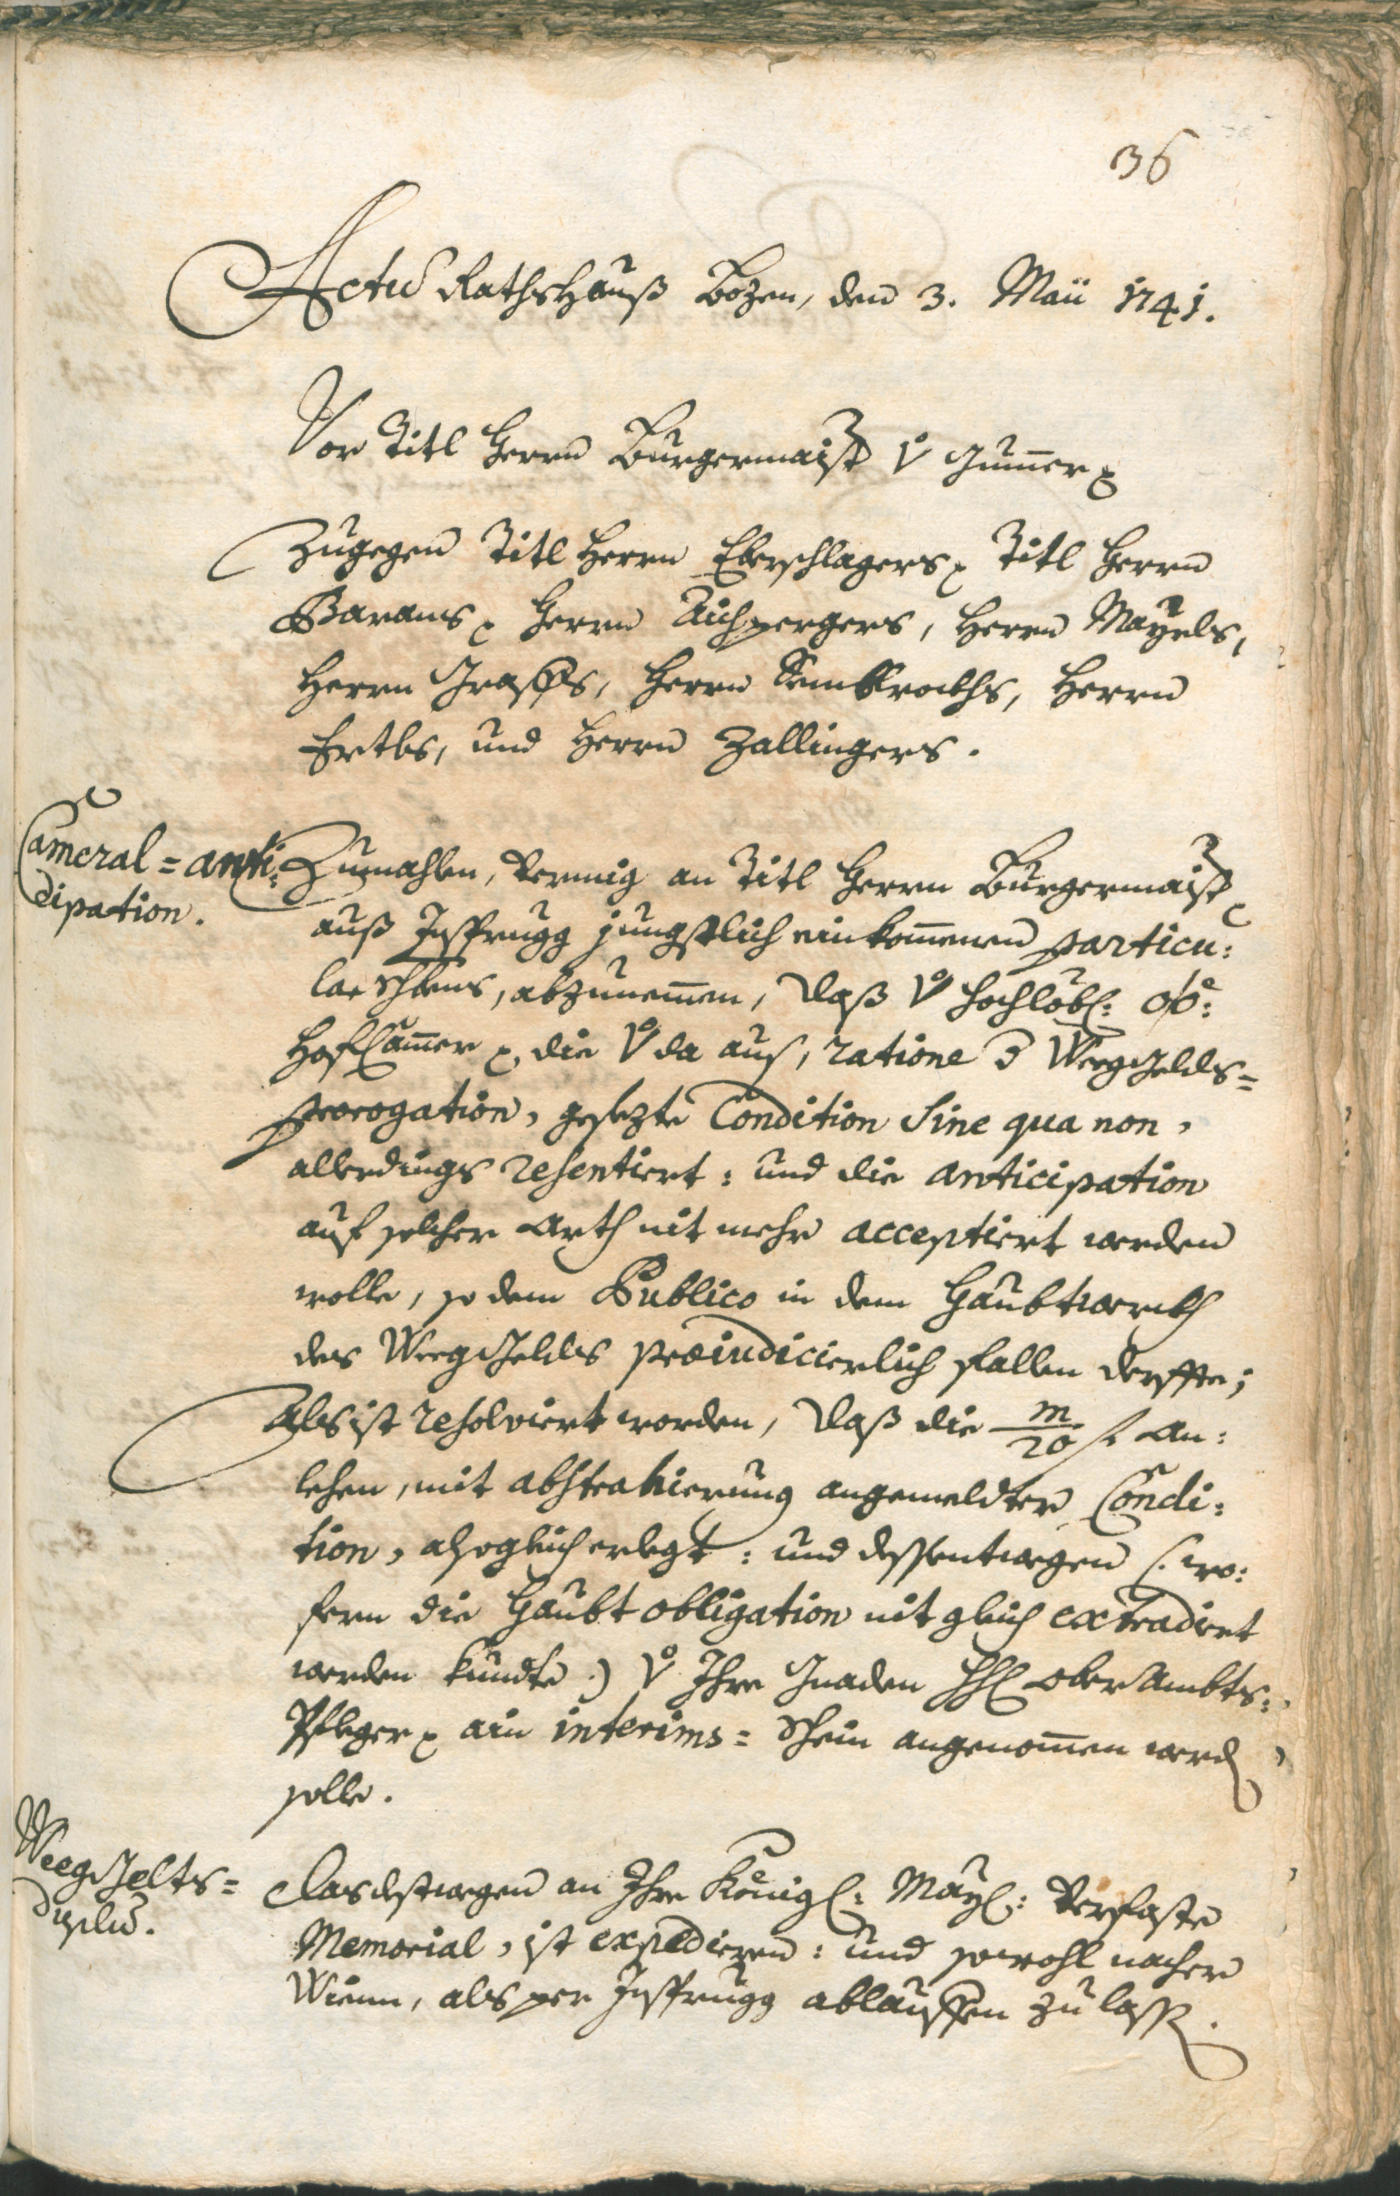 36
Actum Rathshauß Bozen, den 3. Maii 1741.
Vor Titl Herrn Burgermaist: v Gummer
Zugegen Titl Herrn Eberschlagers, Titl Herrn
Barams, Herrn Aichpergers, Herrn Mayrls,
Herrn Graffs, Herrn Sembkroths, Herrn
Ertls, und Herrn Zallingers.
Cameral=anti:
cipation.
Zumahlen, vermig an Titl Herrn Burgermaist:
auß Insprugg jungstlich einkommenen particu:
lar Schreibens, abzunemmen, daß v hochlöbl: oö:
Hof Cammer die v da aus, ratione d Weeggelds=
prorogation, gesezte Condition sine qua non,
allerdings resentiert: und die anticipation
auf solcher Arth nit mehr acceptiert werden
wolle, so dem Publico in dem Haubtwerckh
des Weeggelds præiudicierlich fallen derffte;
Als ist resolviert worden, daß die m/20 f. An:
lehen, mit abstrahierung angemeldter Condi:
tion, alsogleich erlegt: und dessentwegen (: wo:
fern die Haubt obligation nit gleich extradiert
werden kundte :) v Ihre Gnaden Ober Ambts:
Pfleger ain interims=Schein angenommen werd
solle.
Weeggelts=
Das destwegen an Ihre Königl: May: verfaste
Memorial, ist expedieren: und sowohl nacher
Wienn, als per Insprugg ablauffen zu lass.